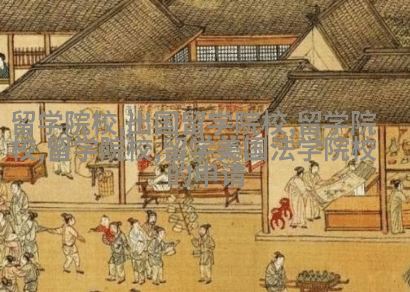 留学院校,出国留学院校,留学院
校,留学院校,留学美国,法学院校
的申请